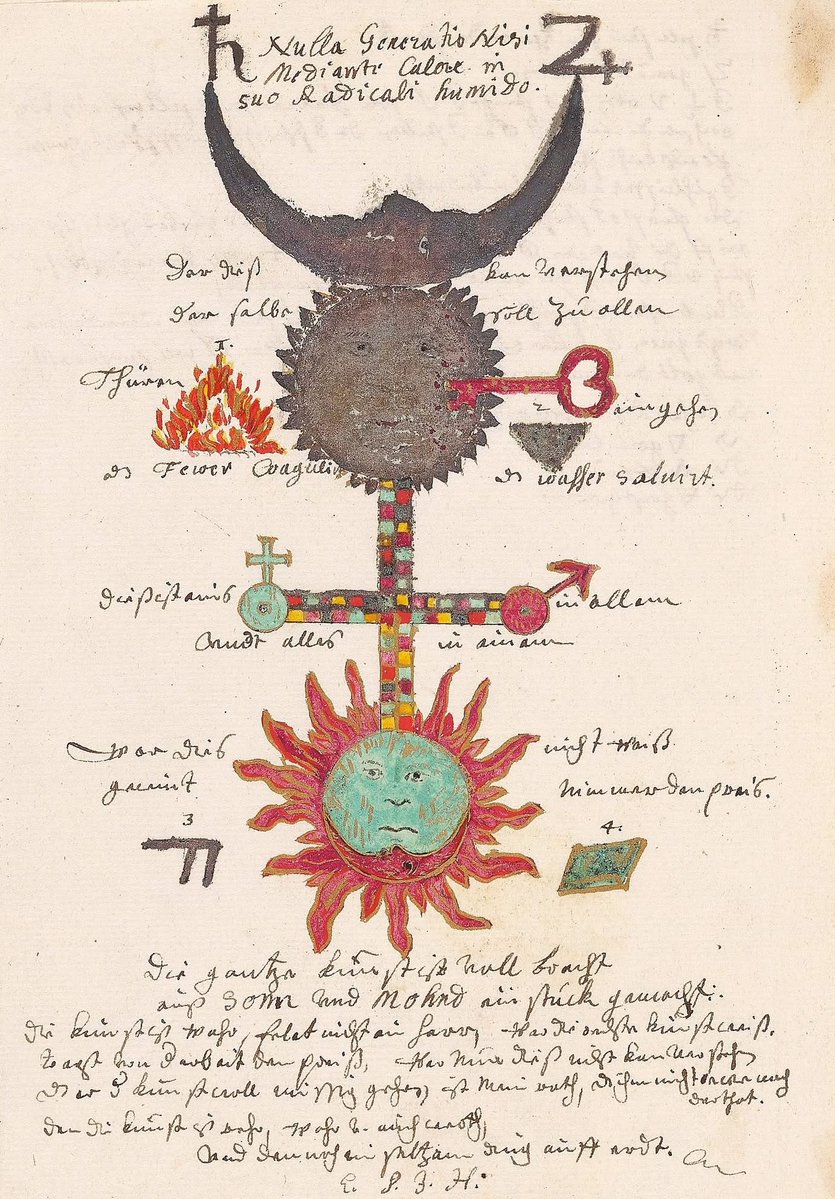 Nulla Generatio Nisi
Mediante Calore in
suo Radicali humido.
Der diß kan verstehen
der selbe soll zu allen
1.
Thüren eingehen
2
ds Fewer Coagulir ds wasser Soluirt.
dießist auis in allem
Vndt alles in einem
Wer dis nicht weiß
nimmer den preis.
3
4.
Die gantze kunst ist voll bracht
auß Sonn Vnd Mohnd ein stück gemacht.
die kunst ist wahr, felet nicht ein harr, Wer die rechte kunst weiß.
den preiß, Wer Nun dieß nicht kan verstehen
der kunst woll müssig gehen, ist Mein rath, ds ihm nicht
den die kunst ist wahr,
Vnd dennoch ein seltzam ding auff erdt.